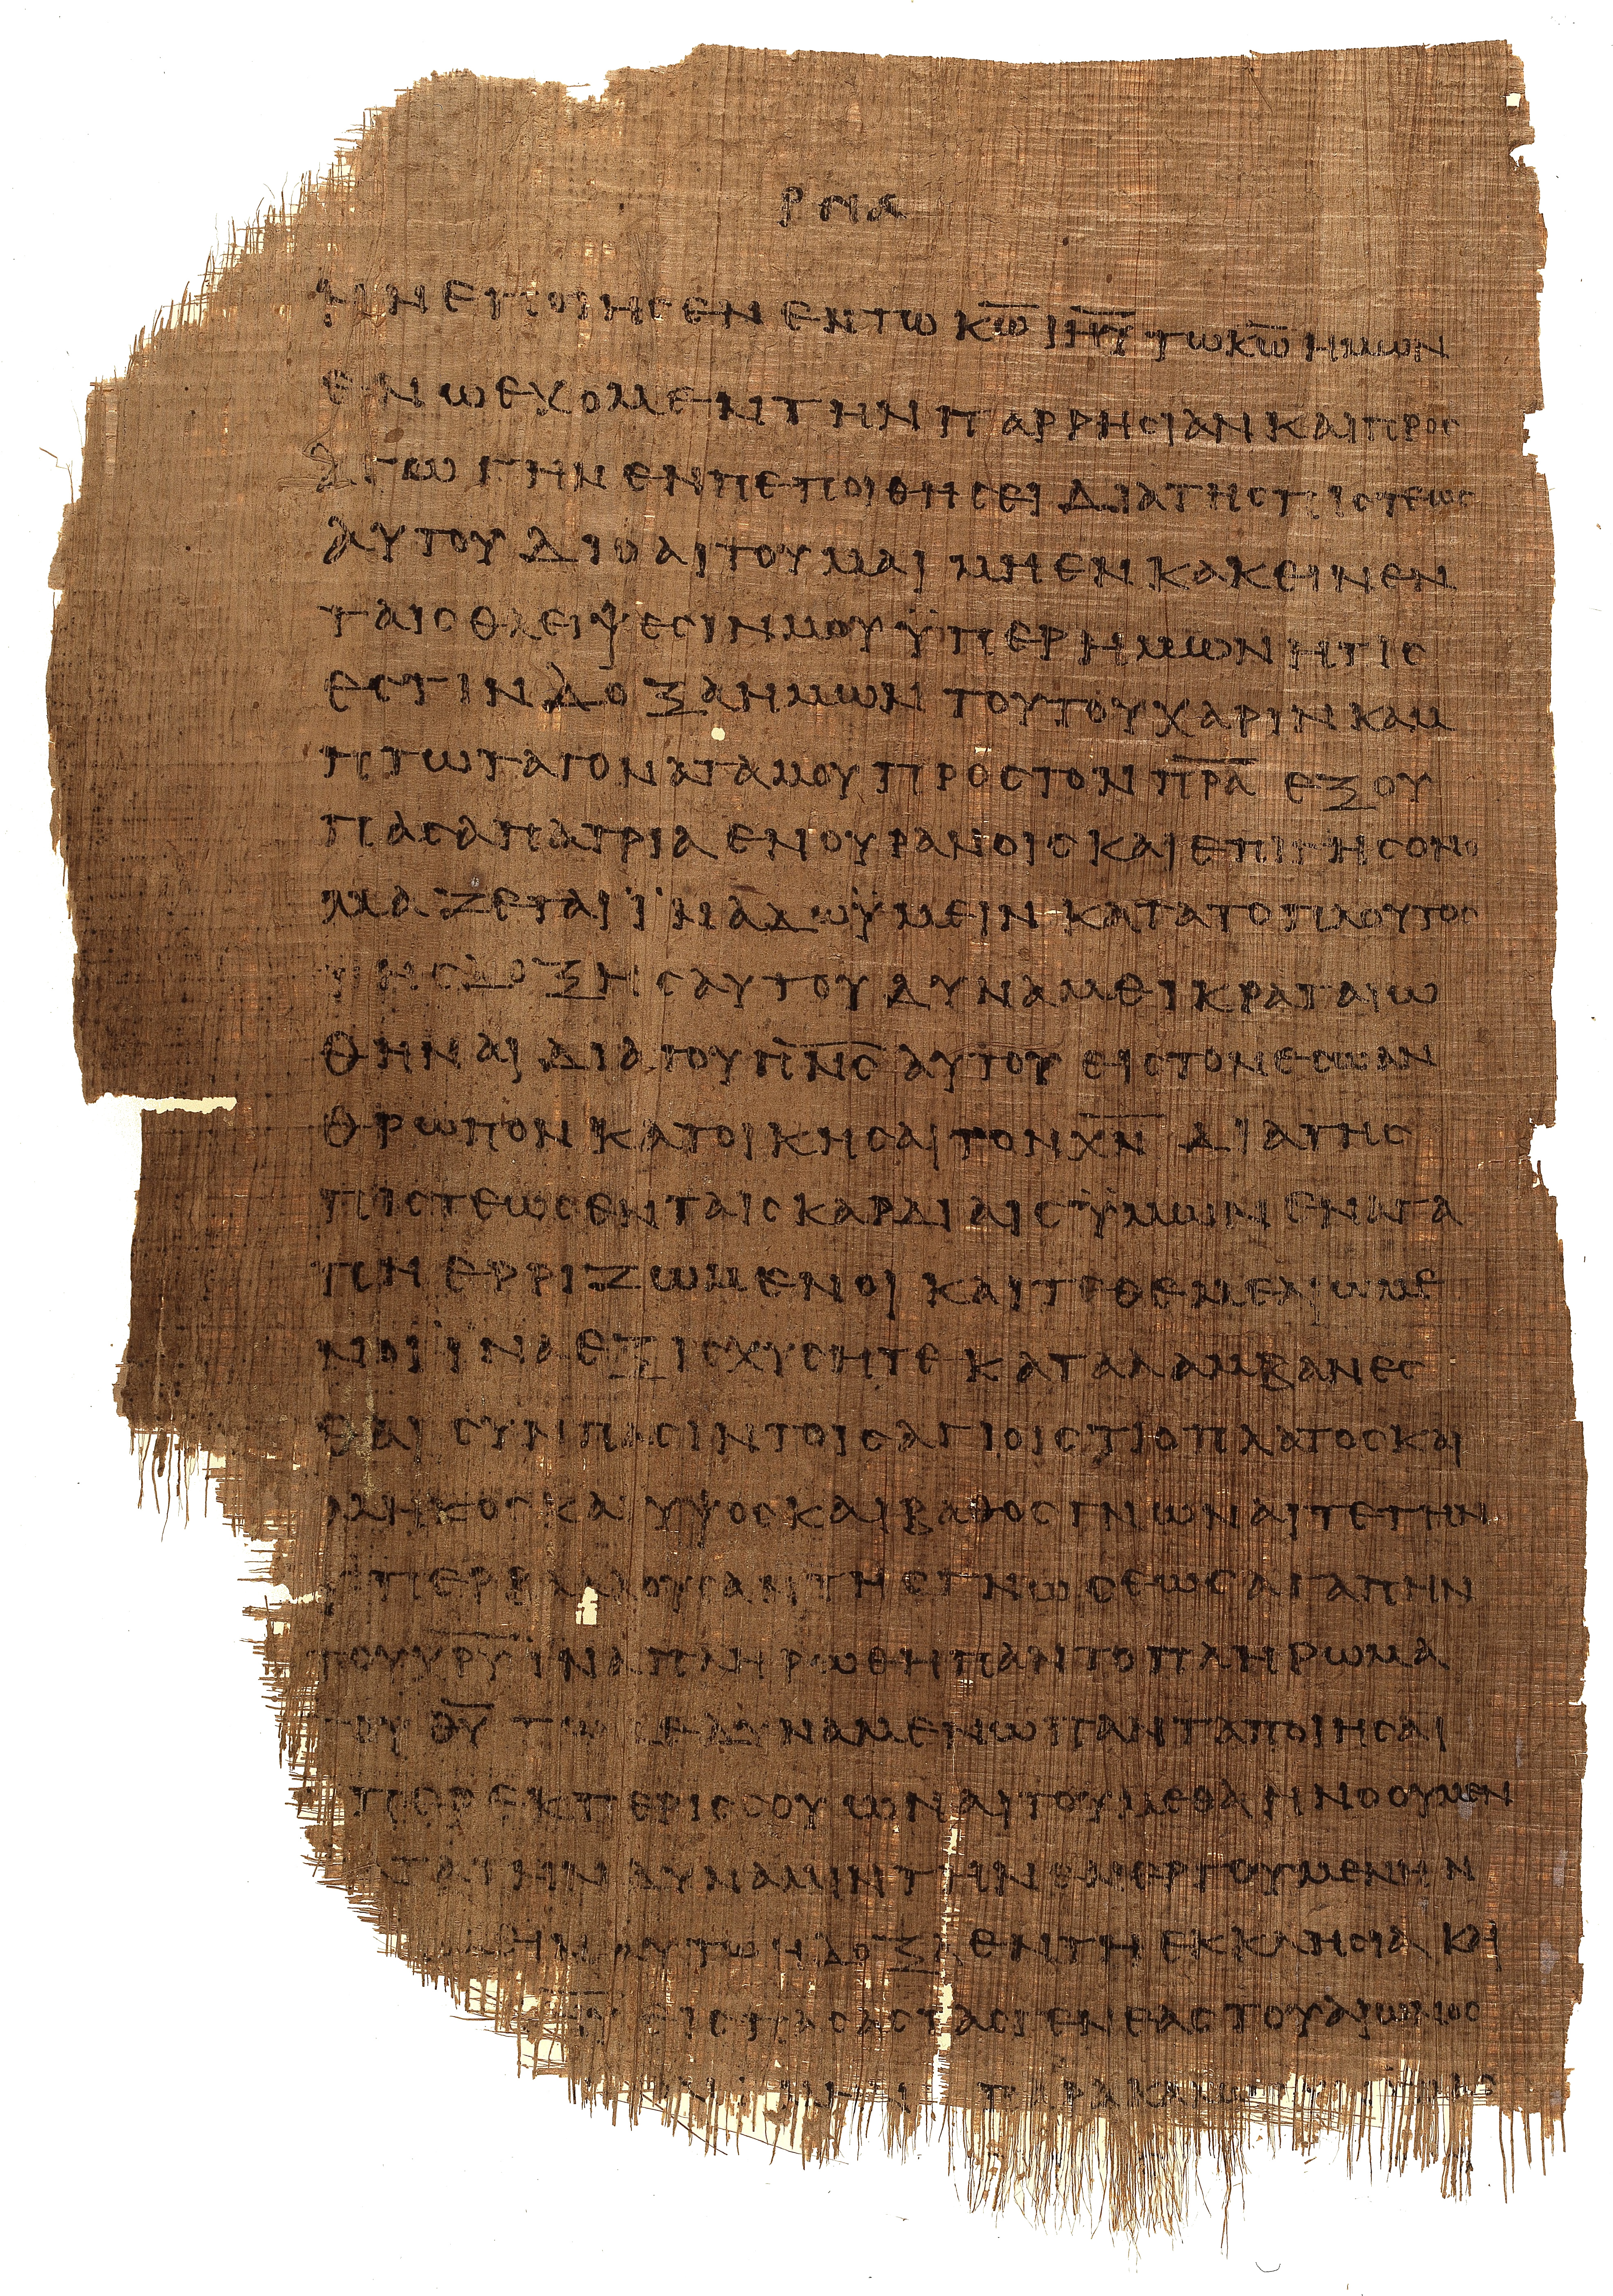 ρμα
ην εποιησεν εν τω κ̅ω̅ ιη̅υ̅ τω κ̅ω̅ ημων
εν ω εχομεν την παρρησιαν και προς
αγωγην εν πεποιθησει δια της πιστεως
αυτου διο αιτουμαι μη ενκακειν εν
ταις θλειψεσιν μου ϋπερ ημων ητις
εστιν δοξα ημων τουτου χαριν καμ
πτω τα γονατα μου προς τον π̅ρ̅α̅ εξ ου
πασα πατρια εν ουρανοις και επι γης ονο
μαζεται ϊνα δω ϋμειν κατα το πλουτος
της δοξης αυτου δυναμει κραταιω
θηναι δια του π̅ν̅ς̅ αυτου εις τον εσω αν
θρωπον κατοικησαι τον χ̅ν̅ δια της
πιστεως εν ταις καρδιαις ϋμων εν αγα
πη ερριζωμενοι και τεθεμελιωμε
νοι ϊνα εξισχυσητε καταλαμβανες
θαι συν πασιν τοις αγιοις τι το πλατος και
μηκος και υψος και βαθος γνωναι τε την
υπερβαλλουσαν της γνωσεως αγαπην
του χ̅ρ̅υ̅ ϊνα πληρωθη παν το πληρωμα
του θ̅υ̅ τω δε δυναμενω παντα ποιησαι
περεκπερισσου ων αιτουμεθα η νοουμεν
τα την δυναμιν την ενεργουμενην
ημιν αυτω η δοξα εν τη εκκλησια και
εις πασας τας γενεας του αιωνος
αμην παρακαλω